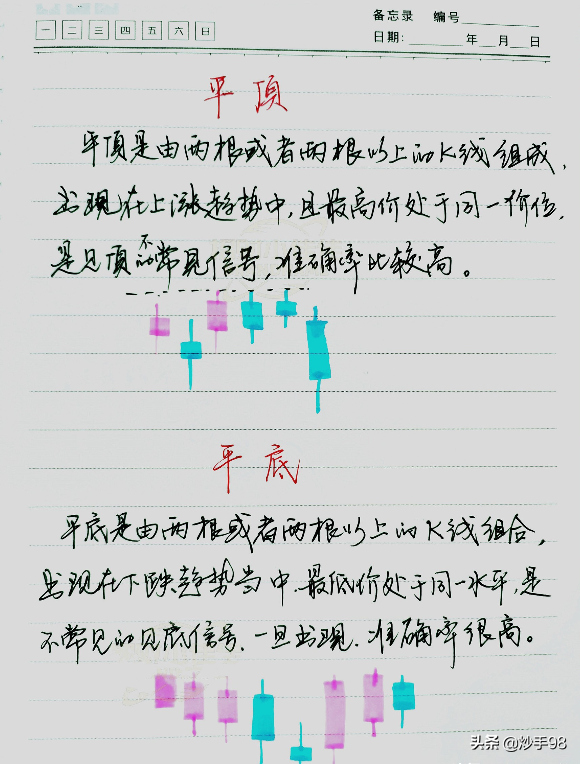 备忘录 编号
一 二 三 四 五 六 日
日期: 年 月 日
平顶
平顶是由两根或者两根以上的K线组成,
出现在上涨趋势中,且最高价处于同一价位,
是见顶不的常见信号,准确率比较高。
平底
平底是由两根或者两根以上的K线组合,
出现在下跌趋势当中.最低价处于同一水平,是
不常见的见底信号.一旦出现.准确率很高。
头条 @炒手98